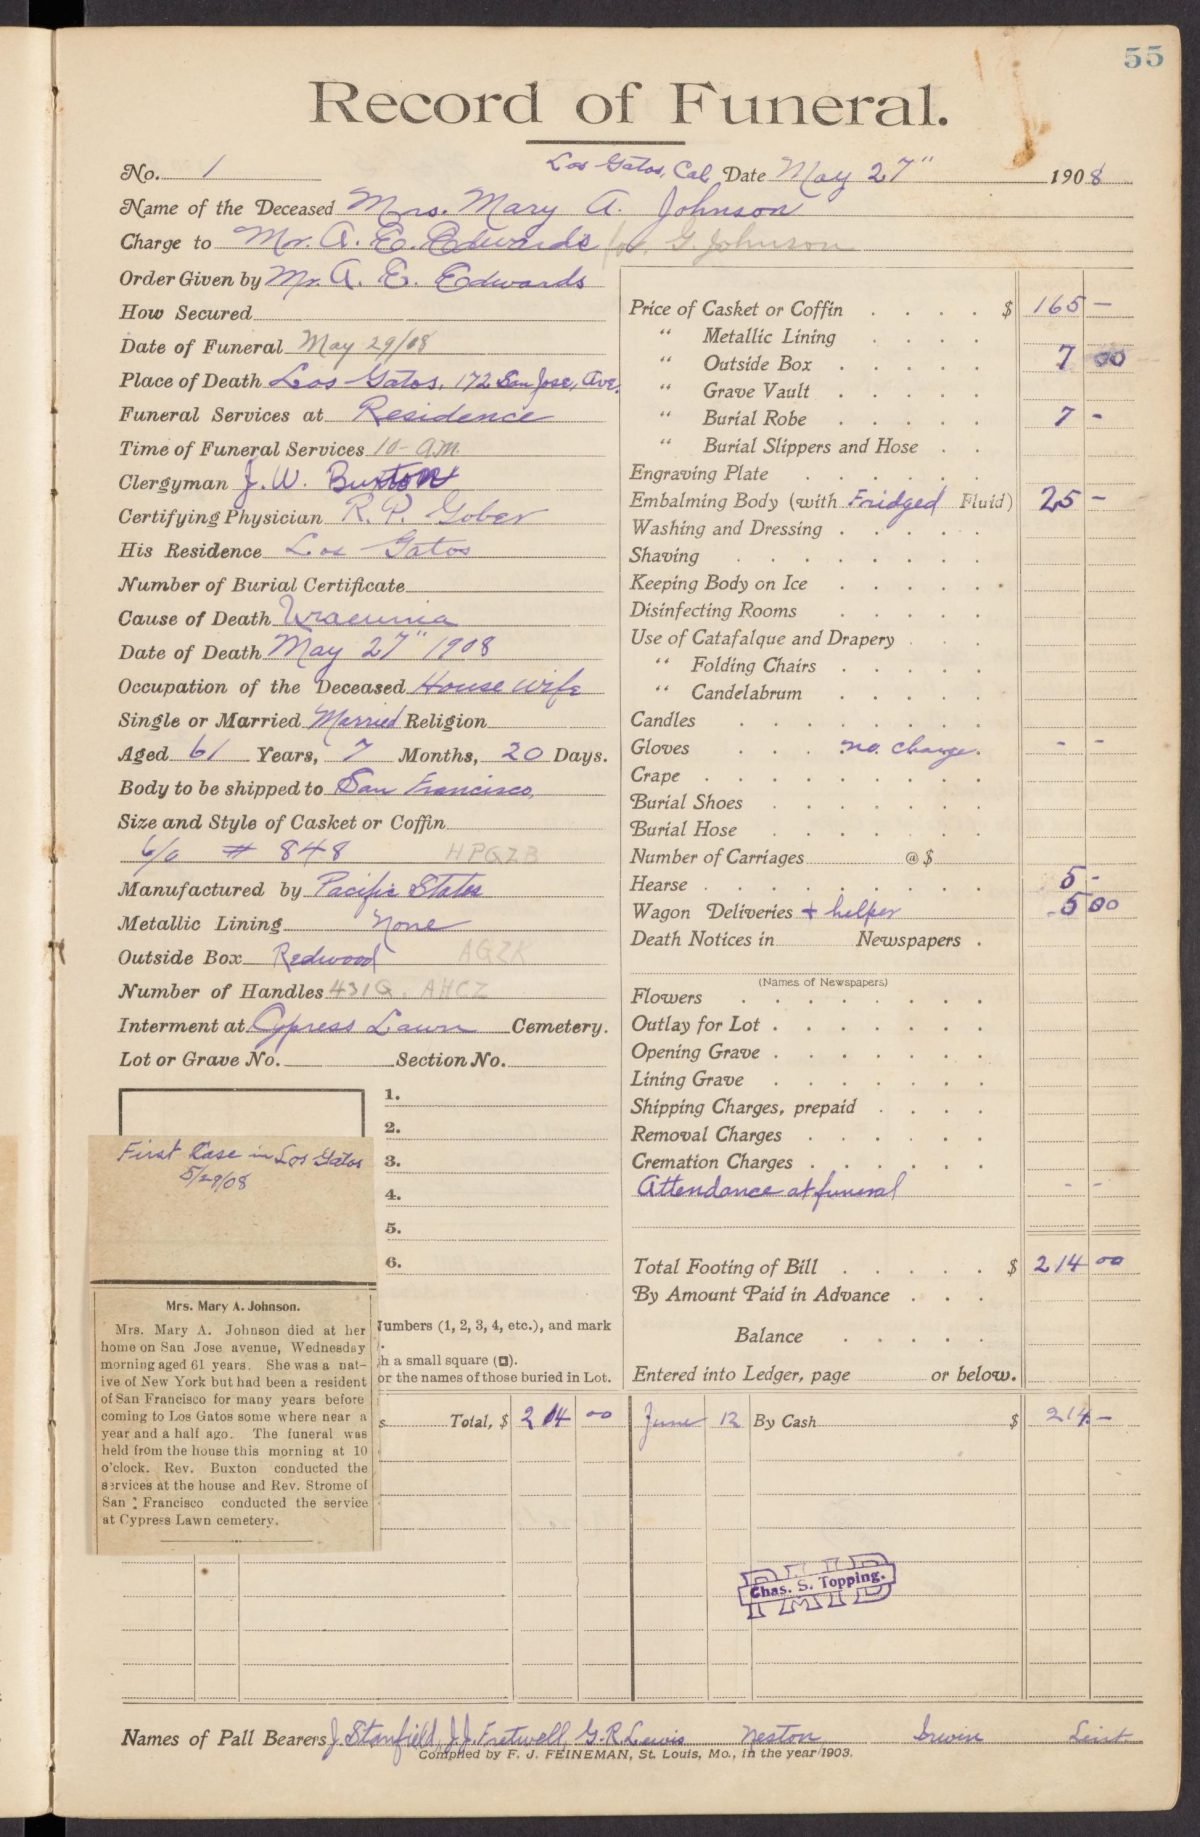 55
Record of Funeral.
No. 1 Los Gatos, Cal. Date May 27" 1908
Name of the Deceased Mrs. Mary A. Johnson
Charge to Mr. A. E. Edwards for G. Johnson
Order Given by Mr. A. E. Edwards
How Secured
Date of Funeral May 29/08
Place of Death Los Gatos, 172 San Jose, Ave.
Funeral Services at Residence
Time of Funeral Services 10- A.M.
Clergyman J. W. Buxton
Certifying Physician R. P. Gober
His Residence Los Gatos
Number of Burial Certificate
Cause of Death Uraemia
Date of Death May 27" 1908
Occupation of the Deceased House wife
Single or Married Married Religion
Aged 61 Years, 7 Months, 20 Days.
Body to be shipped to San Francisco,
Size and Style of Casket or Coffin
6/0 # 848 HPGZB
Manufactured by Pacific States
Metallic Lining None
Outside Box Redwood AGZK
Number of Handles 431Q. AHCZ
Interment at Cypress Lawn Cemetery.
Lot or Grave No. Section No.
1.
2.
3.
4.
5.
6.
First Case in Los Gatos
5/29/08
Mrs. Mary A. Johnson.
Mrs. Mary A. Johnson died at her
home on San Jose avenue, Wednesday
morning aged 61 years. She was a nat-
ive of New York but had been a resident
of San Francisco for many years before
coming to Los Gatos some where near a
year and a half ago. The funeral was
held from the house this morning at 10
o'clock. Rev. Buxton conducted the
services at the house and Rev. Strome of
San Francisco conducted the service
at Cypress Lawn cemetery.
Numbers (1, 2, 3, 4, etc.), and mark
h a small square (◻).
or the names of those buried in Lot.
Price of Casket or Coffin . . . . $ 165 -
" Metallic Lining . . . .
" Outside Box . . . . . 7 00
" Grave Vault . . . . .
" Burial Robe . . . . . 7 -
" Burial Slippers and Hose . .
Engraving Plate . . . . . .
Embalming Body (with Fridged Fluid) 25 -
Washing and Dressing . . . . .
Shaving . . . . . . .
Keeping Body on Ice . . . . .
Disinfecting Rooms . . . . .
Use of Catafalque and Drapery . .
" Folding Chairs . . . . .
" Candelabrum . . . . .
Candles . . . . . . .
Gloves . . . . no. charge. - -
Crape . . . . . . . .
Burial Shoes . . . . . . .
Burial Hose . . . . . . .
Number of Carriages @ $
Hearse . . . . . . . . 5 -
Wagon Deliveries + helper 5 00
Death Notices in Newspapers .
(Names of Newspapers)
Flowers . . . . . . .
Outlay for Lot . . . . . . .
Opening Grave . . . . . . .
Lining Grave . . . . . . .
Shipping Charges, prepaid . . . .
Removal Charges . . . . . .
Cremation Charges . . . . . .
Attendance at funeral - -
Total Footing of Bill . . . . . $ 214 00
By Amount Paid in Advance . . .
Balance . . . . .
Entered into Ledger, page or below.
s Total, $ 214 00 June 12 By Cash $ 214 -
Chas. S. Topping.
PAID
Names of Pall Bearers J. Stanfield, J. J. Fretwell, G. R. Lewis Neston Irwin Lint
Compiled by F. J. FEINEMAN, St. Louis, Mo., in the year 1903.